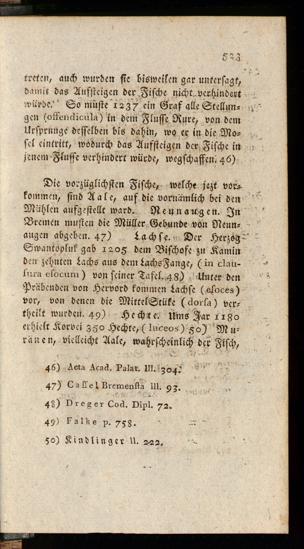 533
treten, auch wurden sie bisweilen gar untersagt,
damit das Aufsteigen der Fische nicht verhindert
würde. So müste 1237 ein Graf alle Stellun-
gen (offendicula) in dem Flusse Rure, von dem
Ursprunge desselben bis dahin, wo er in die Mo-
sel eintritt, wodurch das Aufsteigen der Fische in
jenem Flusse verhindert würde, wegschaffen. 46)
Die vorzüglichsten Fische, welche jezt vor-
kommen, sind Aale, auf die vornämlich bei den
Mühlen aufgestellt ward. Neunaugen. In
Bremen musten die Müller Gebunde von Neun-
augen abgeben. 47) Lachse. Der Herzog
Swantopluk gab 1205 dem Bischofe zu Kamin
den zehnten Lachs aus dem LachsFange, (in clau-
sura esocum) von seiner Tafel. 48) Unter den
Präbenden von Hervord kommen Lachse (esoces)
vor, von denen die MittelStüke (dorsa) ver-
theilt wurden. 49) Hechte. Ums Jar 1180
erhielt Korvei 350 Hechte, (luceos) 50) Mu-
ränen, vielleicht Aale, wahrscheinlich der Fisch,
46) Acta Acad. Palat. III. 304.
47) Cassel Bremensia III. 93.
48) Dreger Cod. Dipl. 72.
49) Falke p. 758.
50) Kindlinger II. 222.